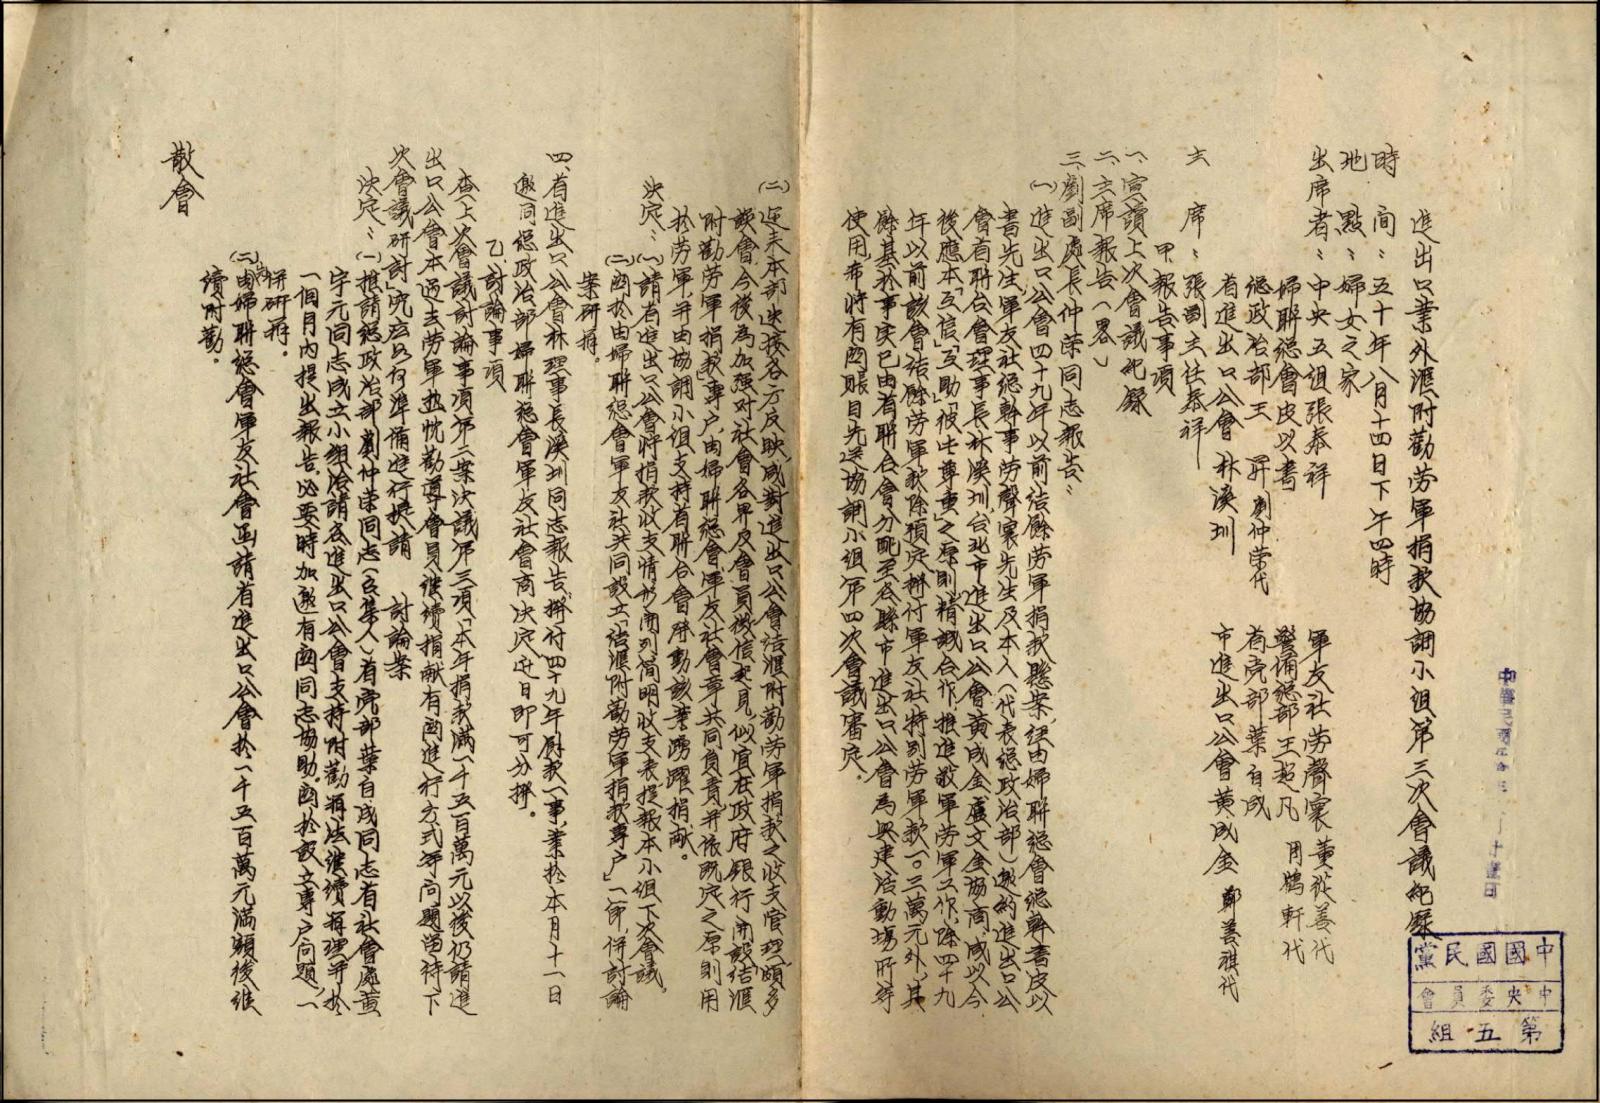 進出口業外滙附勸勞軍捐款協調小組第三次會議紀錄
時間：五十年八月十四日下午四時
地點：婦女之家
出席者：中央五組張泰祥 軍友社勞聲寰 黃從善代
婦聯總會皮以書 警備總部王超凡 周鶴軒代
總政治部王昇 劉仲榮代 省党部葉自成
省進出口公會 林溪圳 市進出口公會黃成金 鄭善祺代
主席：張副主任泰祥
甲、報告事項
一、宣讀上次會議紀錄
二、主席報告（畧）
三、劉副處長仲榮同志報告：
(一)進出口公會四十九年以前結餘勞軍捐款懸案，經由婦聯總會總幹事皮以
書先生，軍友社總幹事勞聲寰先生及本人（代表總政治部）邀約進出口公
會省聯合會理事長林溪圳，台北市進出口公會黃成金、盧文金協商，咸以今
後應本「互信」「互助」「彼此尊重」之原則，精誠合作，推進敬軍勞軍工作，除四十九
年以前該會結餘勞軍款除預定辦付軍友社特別勞軍款一〇三萬元外，其
餘基於事实已由省聯合會分配至各縣市進出口公會為興建活動場所等
使用希將有關賬目先送協調小組第四次會議審定。
(二)近來本部迭接各方反映，咸對進出口公會結滙附勸勞軍捐款之收支管理，頗多
誤會，今後為加强对社會各界及會員徵信起見，似宜在政府銀行，開設結滙
附勸勞軍捐款專户，由婦聯總會，軍友社會章共同負責，并依既定之原則用
於勞軍，并由協調小組支持省聯合會發動該業踴躍捐献。
決定：(一)請省進出口公會將捐款收支情形開列簡明收支表提報本小組下次會議。
(二)關於由婦聯總會軍友社共同設立「結滙附勸勞軍捐款專户」一節，併討論
案研辦。
四、省進出口公會林理事長溪圳同志報告，撥付四十九年尉款一事，業於本月十一日
邀同總政治部婦聯總會軍友社會商決定近日即可分撥。
乙、討論事項
查上次會議討論事項第二案決議第三項「本年捐款滿一千五百萬元以後仍請進
出口公會本過去勞軍热忱勸導會員继續捐献有關進行方式等問題留待下
次會議研討」究应以何準備進行提請 討論案
決定：(一)推請總政治部劉仲榮同志（召集人）省党部葉自成同志省社會處黃
宇元同志成立小組洽請各進出口公會支持附勸辦法继續辦理并於
一個月内提出報告，必要時加邀有關同志協助。關於設立專户問題，一
併研辦。
(二)由婦聯總會軍友社會函請省進出口公會於一千五百萬元滿額後继
續附勸。
散會
中國國民黨
中央委員會
第五組